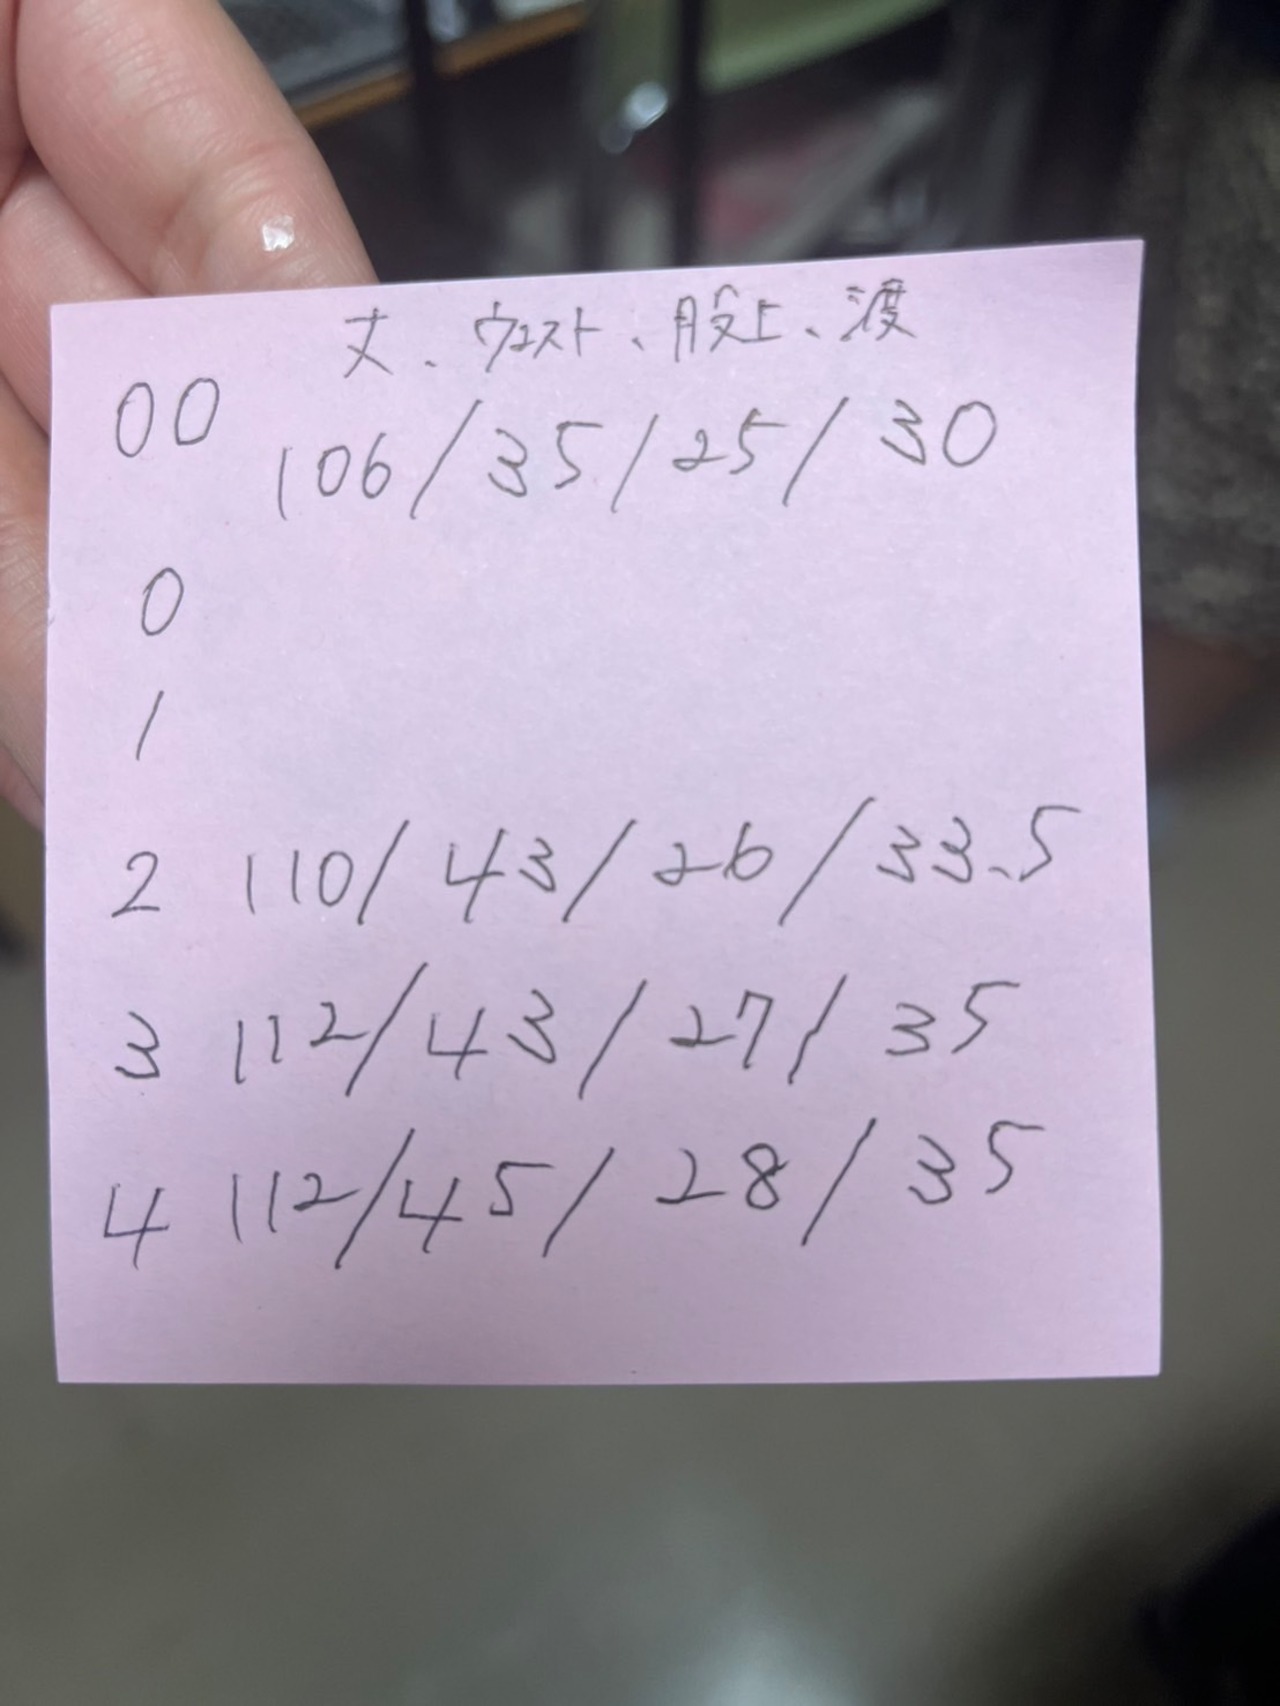 丈、ウエスト、股上、渡
00 106/35/25/30
0
1
2 110/43/26/33.5
3 112/43/27/35
4 112/45/28/35